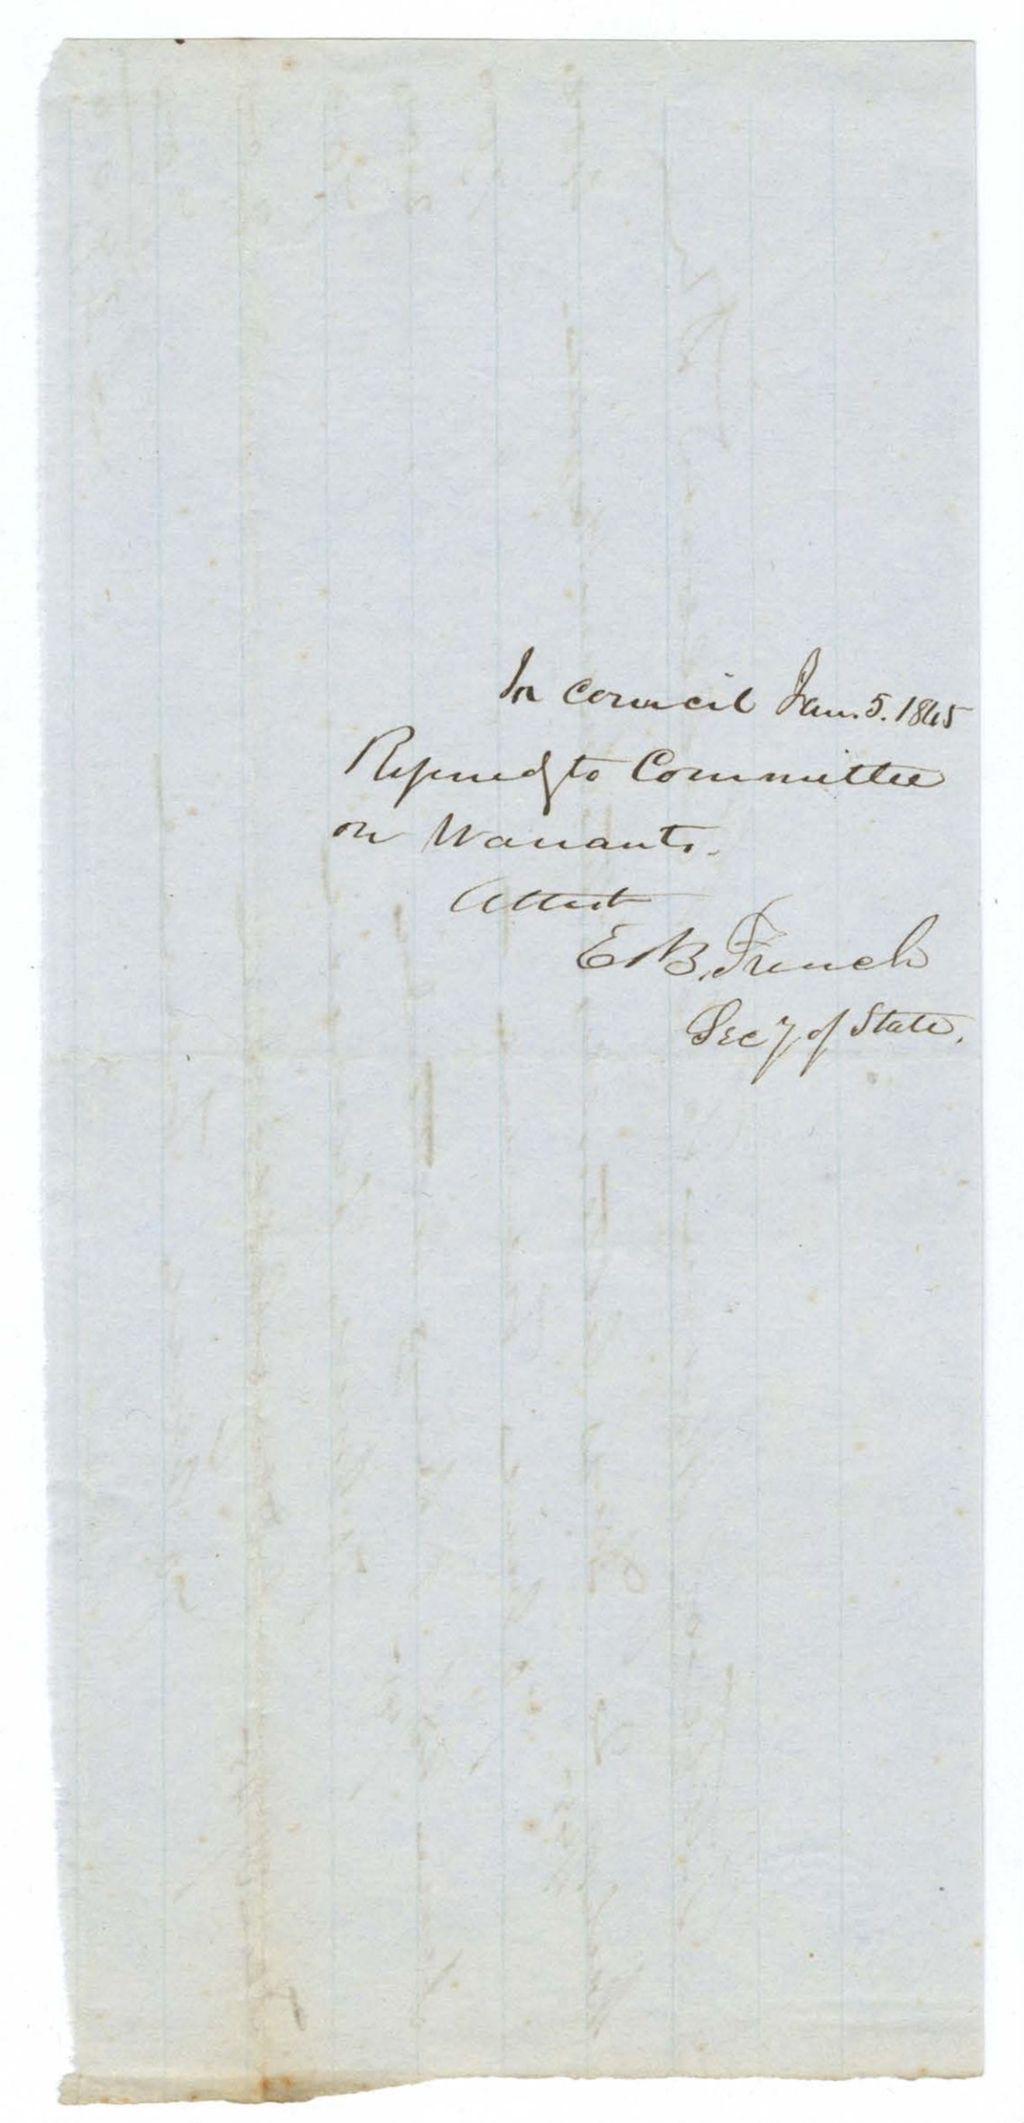 In Council Jan. 5. 1845
Referred to Committee
on Warrants.
Attest
E. B. French
Secy of State.